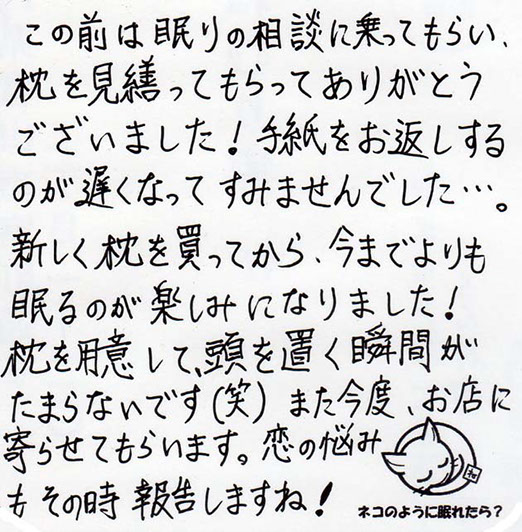 この前は眠りの相談に乗ってもらい、
枕を見繕ってもらってありがとう
ございました！手紙をお返しする
のが遅くなってすみませんでした…。
新しく枕を買ってから、今までよりも
眠るのが楽しみになりました！
枕を用意して、頭を置く瞬間が
たまらないです(笑) また今度、お店に
寄らせてもらいます。恋の悩み
もその時報告しますね！
ネコのように眠れたら？